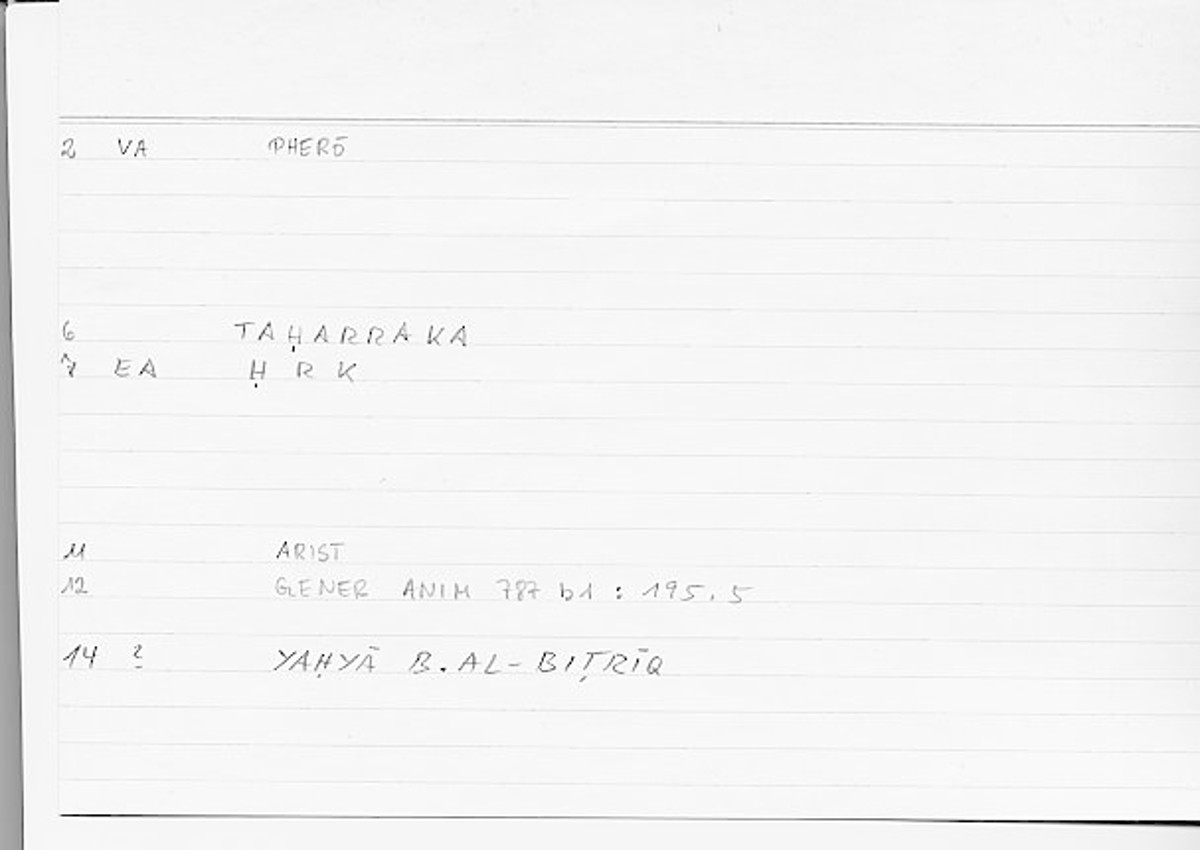 2 VA PHERŌ
6 TAḤARRAKA
7 EA Ḥ R K
11 ARIST
12 GENER ANIM 787 b1 : 195.5
14 2 YAḤYĀ B. AL-BIṬRĪQ